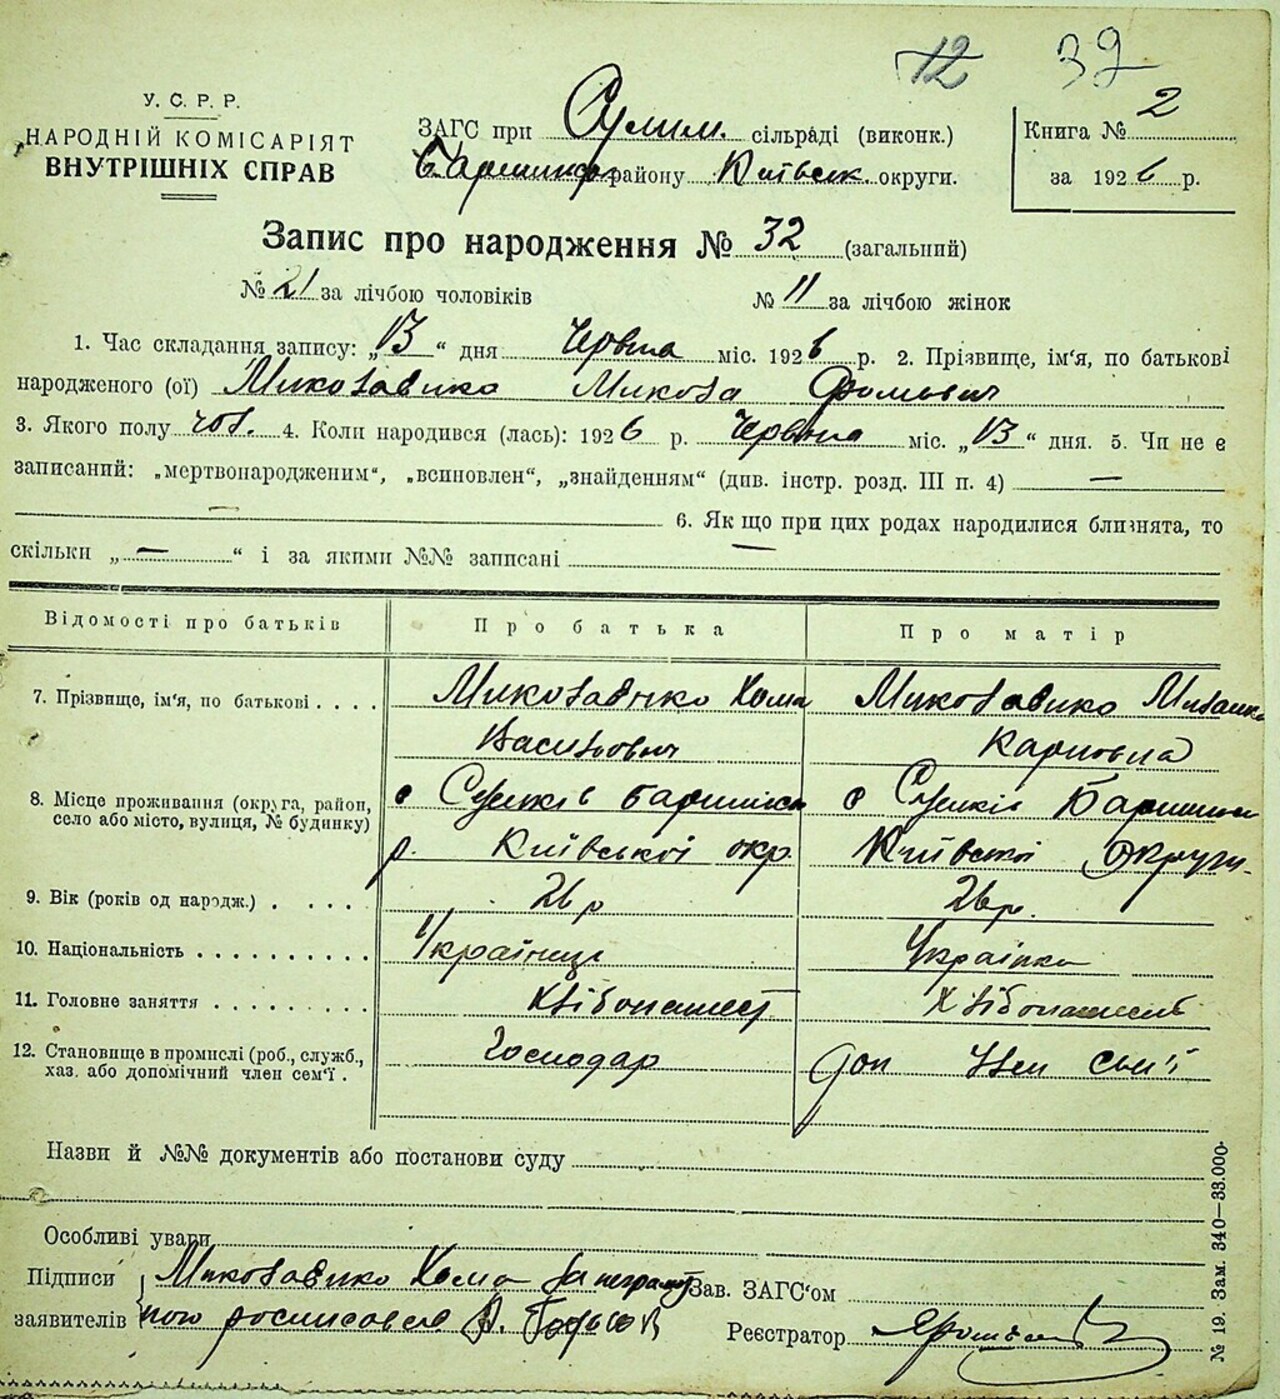 12 39
У. С. Р. Р.
НАРОДНІЙ КОМІСАРІЯТ
ВНУТРІШНІХ СПРАВ
ЗАГС при Сулим. сільраді (виконк.)
району Київськ. округи.
Книга № 2
за 1926 р.
Запис про народження № 32 (загальний)
№ 21 за лічбою чоловіків № 11 за лічбою жінок
1. Час складання запису: „13“ дня Червня міс. 1926 р. 2. Прізвище, ім'я, по батькові
народженого (ої) Миколаенко Микола Фомович
3. Якого полу чол. 4. Коли народився (лась): 1926 р. Червня міс. „13“ дня. 5. Чи не є
записаний: „мертвонародженим“, „всиновлен“, „знайденням“ (див. інстр. розд. III п. 4) —
— 6. Як що при цих родах народилися близнята, то
скільки „—“ і за якими №№ записані —
Відомості про батьків Про батька Про матір
7. Прізвище, ім'я, по батькові . . . . Хома
Васильович Карповна
8. Місце проживання (округа, район,
село або місто, вулиця, № будинку)
р. Київської окр. Київскої Округи.
9. Вік (років од народж.) . . . . . 26 р 26 р.
10. Національність . . . . . . . . . . Українець Українка
11. Головне заняття . . . . . . . . Хлібопашест
12. Становище в промислі (роб., служб.,
хаз. або допомічний член сем'ї . Господар доп член сем'ї
Назви й №№ документів або постанови суду
Особливі уваги
Підписи Хома за неграмот Зав. ЗАГС'ом
заявителів ного росписался Реєстратор
№ 19. Зам. 340—33.000